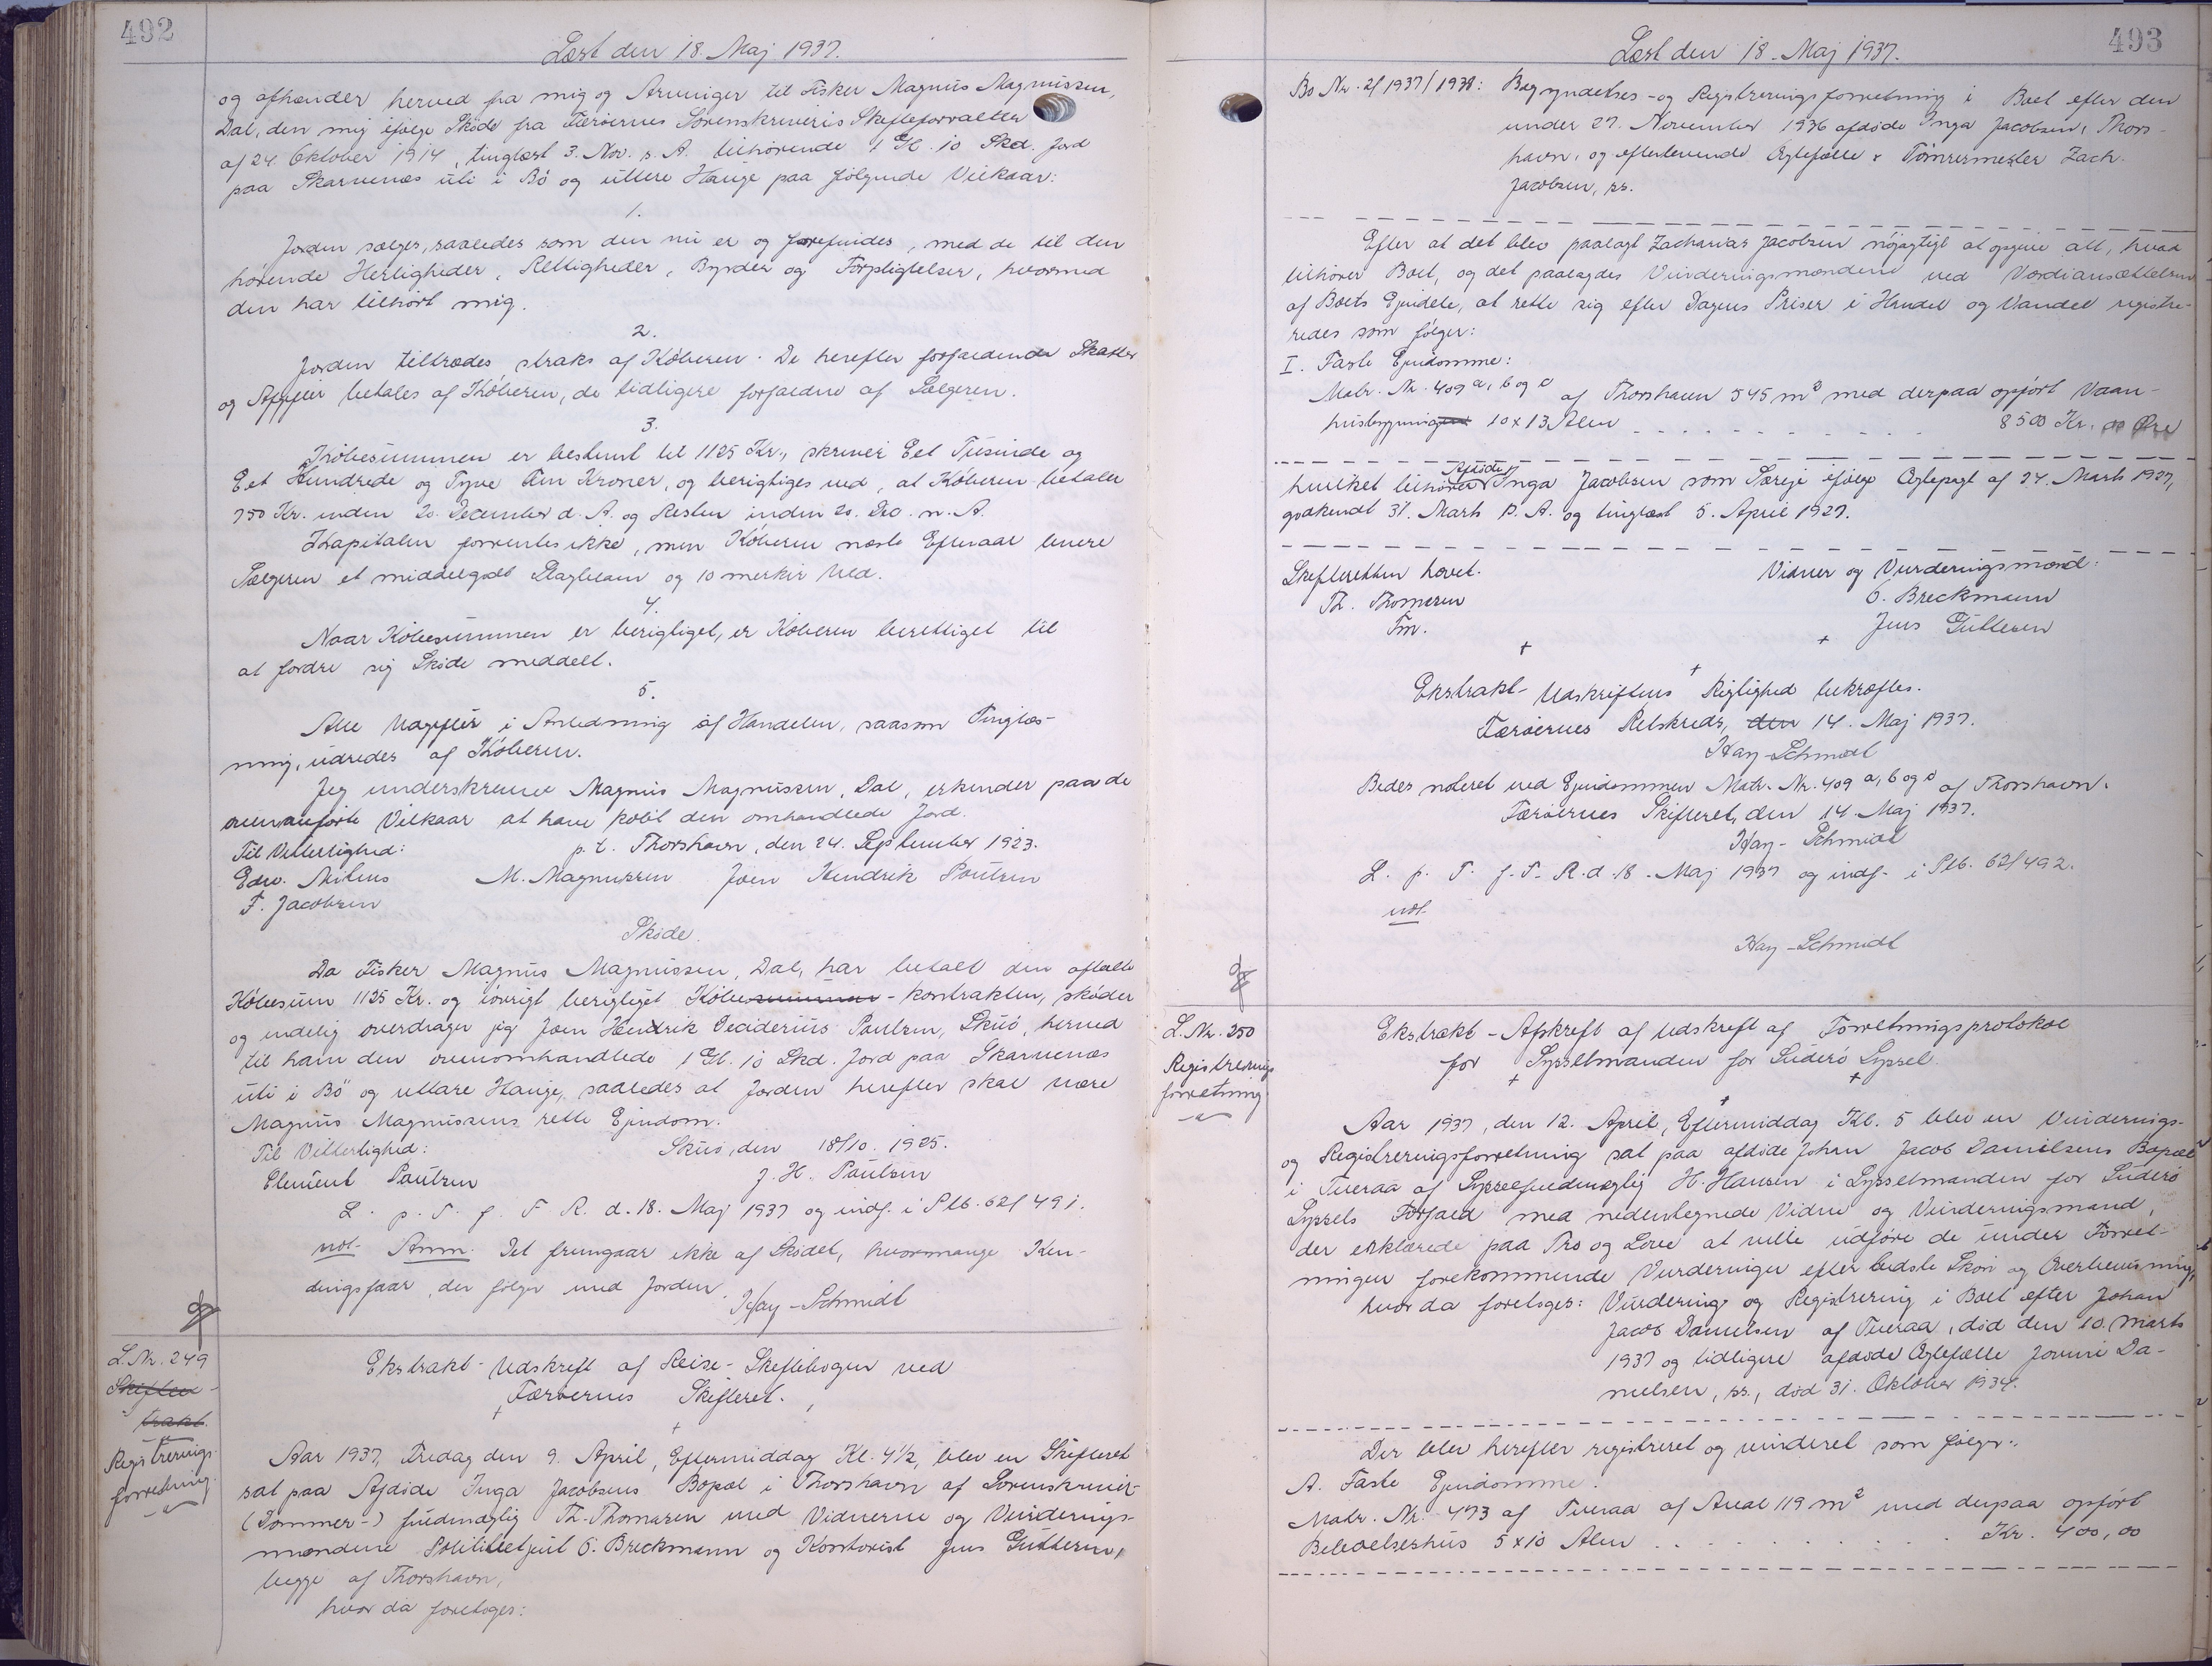 492
Læst den 18. Maj 1937.
og afhænder herved fra mig og Arvinger til Fisker Magnus Magnussen,
Dal, den mig ifølge Skøde fra Færøernes Sorenskriveris Skifteforvalter
af 24. Oktober 1914, tinglæst 3. Nov. s. A. tilhørende 1 Gl. 10 Skd. Jord
paa Skarvenæs uti i Bø og uttere Hauge paa følgende Vilkaar:
1.
Jorden sælges, saaledes som den nu er og forefindes, med de til den
hørende Herligheder, Rettigheder, Byrder og Forpligtelser, hvormed
den har tilhørt mig.
2.
Jorden tiltrædes straks af Køberen. De herefter forfaldende Skatter
og Afgifter betales af Køberen, de tidligere forfaldne af Sælgeren.
3.
Købesummen er bestemt til 1125 Kr., skriver Eet Tusinde og
Eet Hundrede og Tyve Fem Kroner, og berigtiges ved, at Køberen betaler
750 Kr. inden 20. December d. A. og Resten inden 20. Dec. n. A.
Kapitalen forrentes ikke, men Køberen næste Efteraar levere
Sælgeren et middelgodt Slagtelam og 10 merkir Uld.
4.
Naar Købesummen er berigtiget, er Køberen berettiget til
at fordre sig Skøde meddelt.
5.
Alle Udgifter i Anledning af Handelen, saasom Tinglæs-
ning, udredes af Køberen.
Jeg underskrevne Magnus Magnussen, Dal, erkender paa de
ovenanførte Vilkaar at have købt den omhandlede Jord.
Til Vitterlighed: p. t. Thorshavn, den 24. September 1923.
Edw. Mitens M. Magnussen Joen Hendrik Poulsen
F. Jacobsen
Skøde.
Da Fisker Magnus Magnussen, Dal, har betalt den aftalte
Købesum 1125 Kr. og iøvrigt berigtiget Købesummen - kontrakten, skøder
og endelig overdrager jeg Joen Hendrik Deciderius Poulsen, Skuø, herved
til ham den ovenomhandlede 1 Gl. 10 Skd. Jord paa Skarvenæs
uti i Bø og uttare Hauge, saaledes at Jorden herefter skal være
Magnus Magnussens rette Ejendom.
Til Vitterlighed: Skuø, den 18/10. 1925.
Clement Poulsen J. H. Poulsen
L. p. T. f. F. R. d. 18. Maj 1937 og indf. i Ptb. 62/491.
not. Anm. Det fremgaar ikke af Skødet, hvormange Ken-
dingsfaar, der følger med Jorden.
Hay-Schmidt
L. Nr. 249
Skifteex-
trakt.
Registrerings-
forretning.
Ekstrakt-Udskrift af Reise-Skiftebogen ved
Færøernes Skifteret.
Aar 1937, Fredag den 9. April, Eftermiddag Kl. 4 1/2, blev en Skifteret
sat paa Afdøde Inga Jacobsens Bopæl i Thorshavn af Sorenskriver-
(Dommer-) fuldmægtig Th. Thomsen med Vidnerne og Vurderings-
mændene Politibetjent O. Breckmann og Kontorist Jens Guttesen,
begge af Thorshavn,
hvor da foretoges:
493
Læst den 18. Maj 1937.
Bo Nr. 2/1937/1938: Begyndelses- og Registreringsforretning i Boet efter den
under 27. November 1936 afdøde Inga Jacobsen, Thors-
havn, og efterlevende Ægtefælle Tømrermester Zach.
Jacobsen, ss.
Efter at det blev paalagt Zacharias Jacobsen nøjagtigt at opgive alt, hvad
tilhører Boet, og det paalagdes Vurderingsmændene ved Værdiansættelsen
af Boets Ejendele, at rette sig efter Dagens Priser i Handel og Vandel registre-
redes som følger:
I. Faste Ejendomme:
Matr. Nr. 409 a, b og c af Thorshavn 545 m² med derpaa opført Vaan-
husbygning 10 x 13 Alen 8500 Kr. 00 Øre
hvilket tilhører Afdøde Inga Jacobsen som Særeje ifølge Ægtepagt af 24. Marts 1927,
godkendt 31. Marts s. A. og tinglæst 5. April 1927.
Skifteretten hævet. Vidner og Vurderingsmænd:
Th. Thomsen O. Breckmann
Fm. Jens Guttesen
Ekstrakt-Udskriftens Rigtighed bekræftes.
Færøernes Retskreds, den 14. Maj 1937.
Hay-Schmidt
Bedes noteret ved Ejendommen Matr. Nr. 409 a, b og c af Thorshavn.
Færøernes Skifteret, den 14. Maj 1937.
Hay-Schmidt
L. p. T. f. F. R. d. 18. Maj 1937 og indf. i Ptb. 62/492.
not.
Hay-Schmidt
L. Nr. 250
Registrerings
forretning.
Ekstrakt-Afskrift af Udskrift af Forretningsprotokol
for Sysselmanden for Suderø Syssel.
Aar 1937, den 12. April, Eftermiddag Kl. 5 blev en Vurderings-
og Registreringsforretning sat paa afdøde Johan Jacob Danielsens Bopæl
i Tveraa af Sysselfuldmægtig H. Hansen i Sysselmanden for Suderø
Syssels Forfald med nedentegnede Vidne og Vurderingsmænd,
der erklærede paa Tro og Love at ville udføre de under Forret-
ningen forekommende Vurderinger efter bedste Skøn og Overbevisning,
hvor da foretoges: Vurdering og Registrering i Boet efter Johan
Jacob Danielsen af Tveraa, død den 10. Marts
1937 og tidligere afdøde Ægtefælle Da-
nielsen, ss., død 31. Oktober 1934.
Der blev herefter registreret og vurderet som følger:
A. Faste Ejendomme.
Matr. Nr. 473 af Tveraa af Areal 119 m² med derpaa opført
Beboelseshus 5 x 10 Alen Kr. 400,00